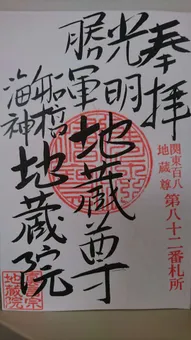 奉拝
関東百八
地蔵尊
第八十二番札所
光明
勝軍
地蔵尊
船橋
海神
地蔵院